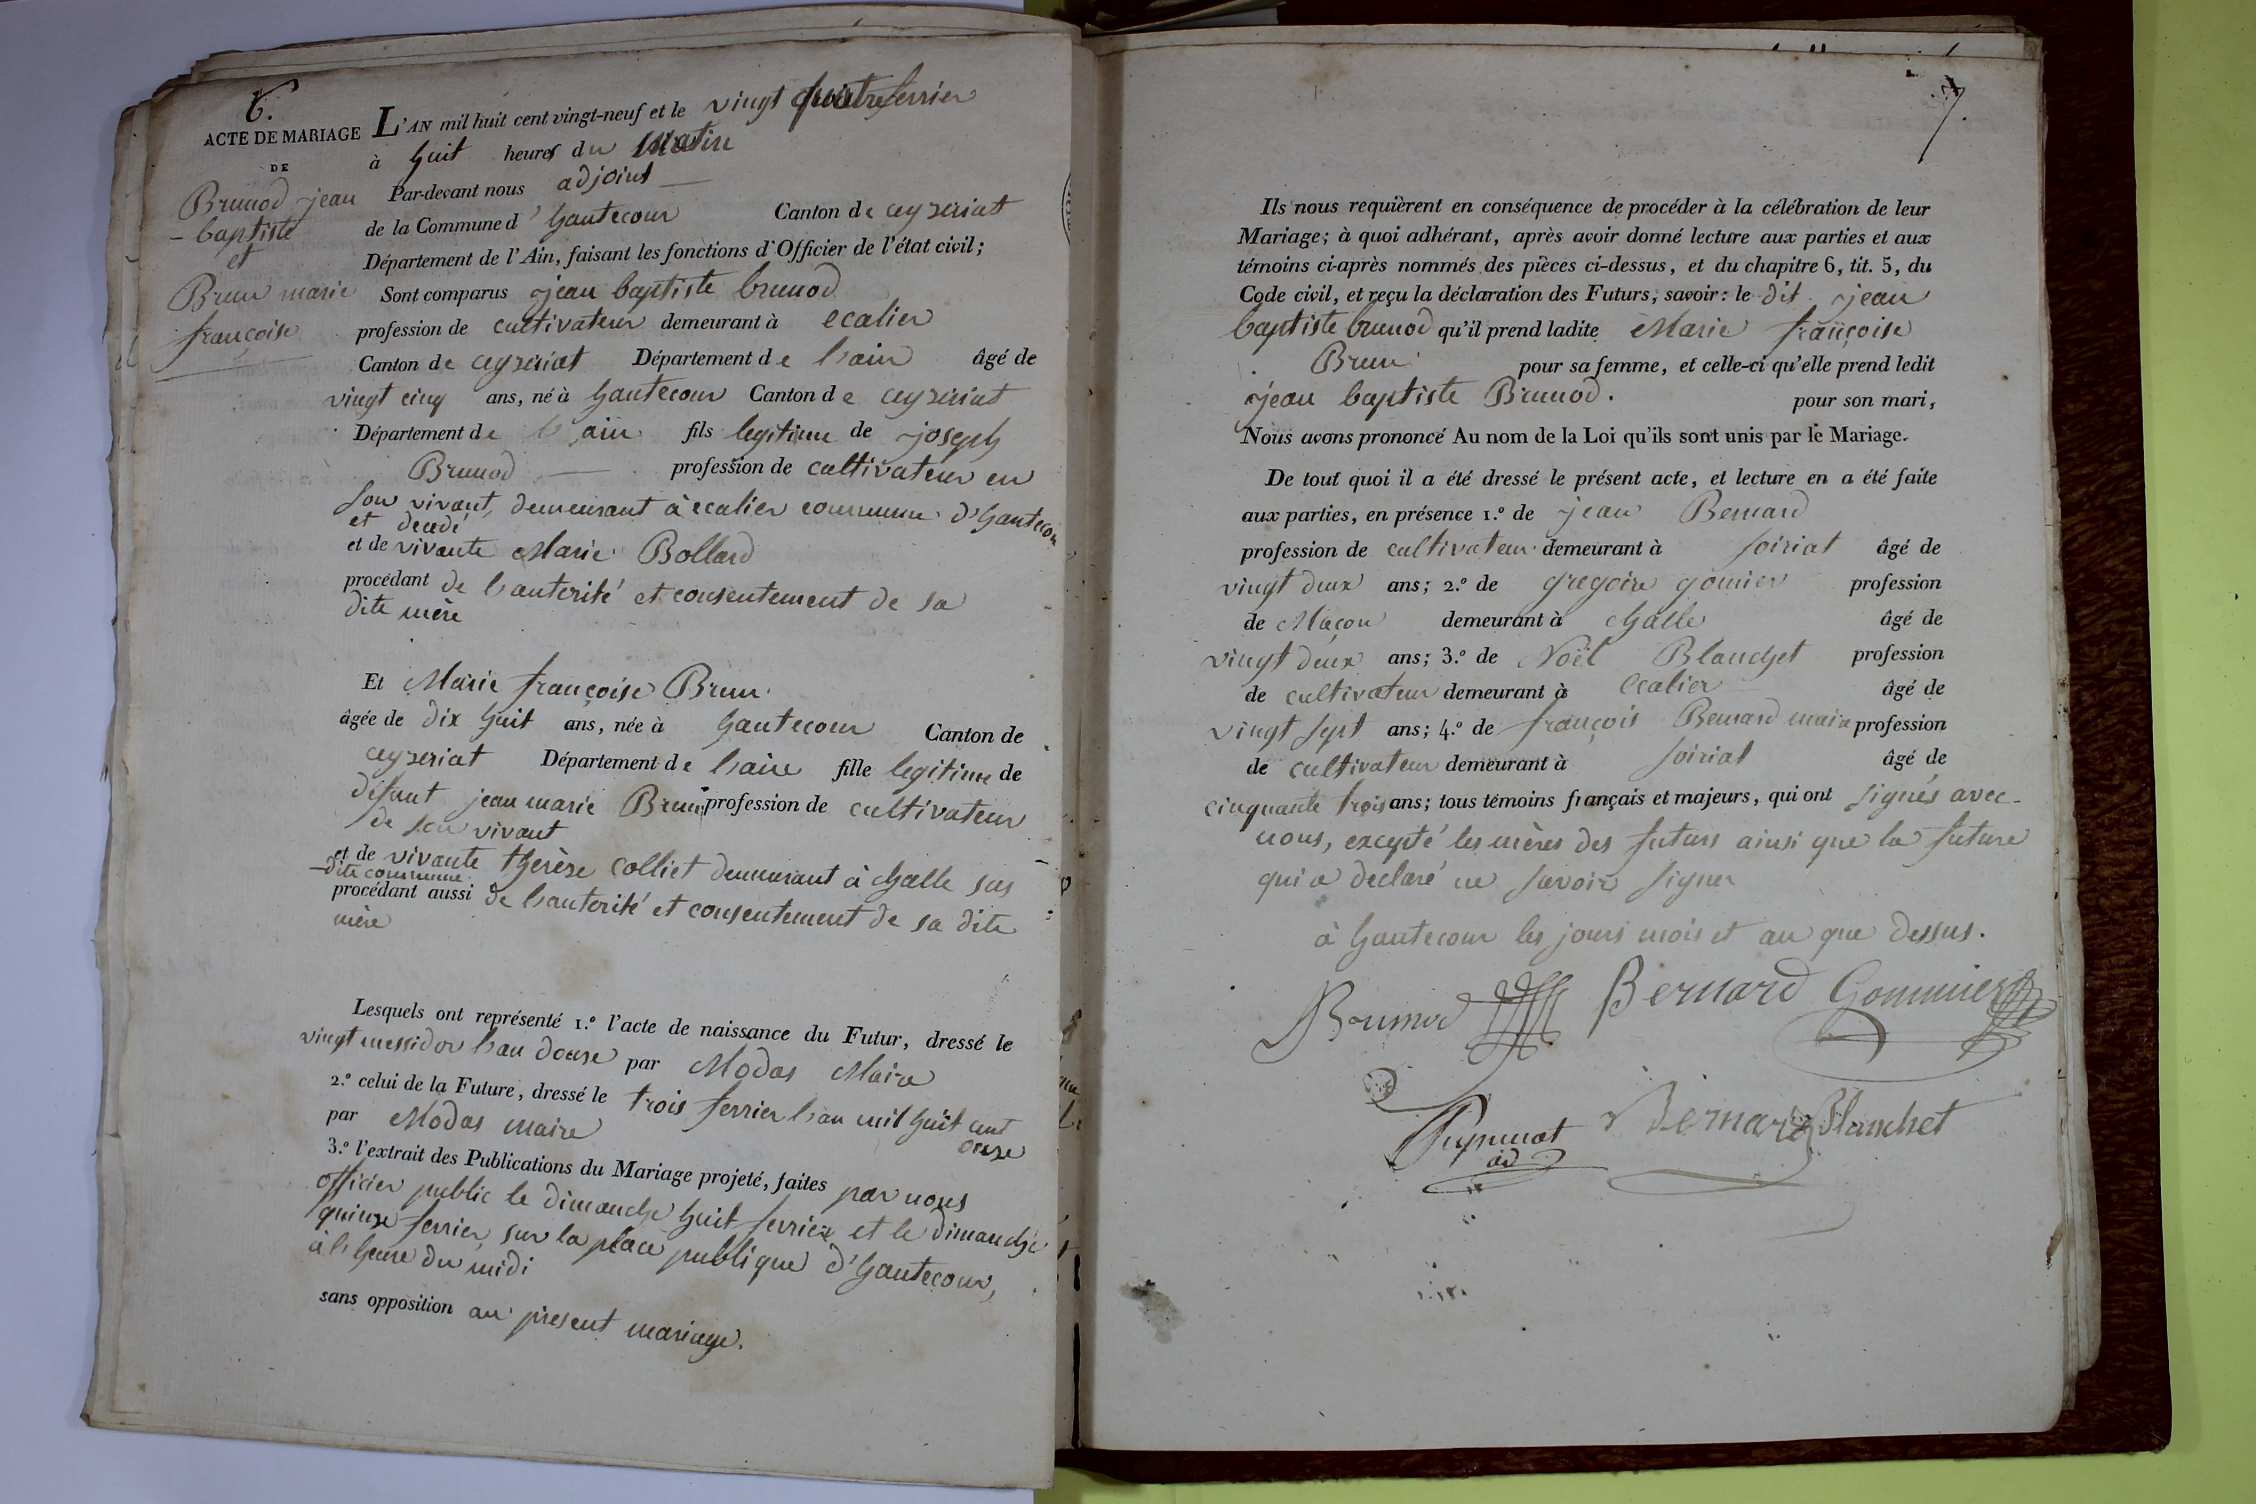 6.
ACTE DE MARIAGE
DE
Brunod jean
- baptiste
et
Brun marie
françoise
L'AN mil huit cent vingt-neuf et le vingt quatre fevrier
à huit heures du Matin
Par-devant nous adjoint
de la Commune d'hautecour Canton de ceyzeriat
Département de l'Ain, faisant les fonctions d'Officier de l'état civil;
Sont comparus jean baptiste brunod
profession de cultivateur demeurant à ecalier
Canton de ceyzeriat Département de l'ain âgé de
vingt cinq ans, né à hautecour Canton de ceyzeriat
Département de l'ain fils legitime de joseph
Brunod profession de cultivateur en
son vivant, demeurant à ecalier commune d'hautecour
et decedé
et de vivante Marie Bollard
procédant de l'autorité et consentement de sa
dite mère
Et Marie françoise Brun
âgée de dix huit ans, née à hautecour Canton de
ceyzeriat Département de l'ain fille legitime de
defunt jean marie Brun profession de cultivateur
de son vivant
et de vivante therèse Colliet demeurant à challe sus
-dite commune
procédant aussi de l'autorité et consentement de sa dite
mère
Lesquels ont représenté 1.° l'acte de naissance du Futur, dressé le
vingt messidor l'an douze par Modas Maire
2.° celui de la Future, dressé le trois fevrier l'an mil huit cent
onze
par Modas maire
3.° l'extrait des Publications du Mariage projeté, faites par nous
officier public le dimanche huit fevrier et le dimanche
quinze fevrier, sur la place publique d'hautecour,
à l'heure du midi
sans opposition au présent mariage.
7.
Ils nous requièrent en conséquence de procéder à la célébration de leur
Mariage; à quoi adhérant, après avoir donné lecture aux parties et aux
témoins ci-après nommés des pièces ci-dessus, et du chapitre 6, tit. 5, du
Code civil, et reçu la déclaration des Futurs, savoir: le dit jean
baptiste brunod qu'il prend ladite Marie françoise
Brun pour sa femme, et celle-ci qu'elle prend ledit
jean baptiste Brunod. pour son mari,
Nous avons prononcé Au nom de la Loi qu'ils sont unis par le Mariage.
De tout quoi il a été dressé le présent acte, et lecture en a été faite
aux parties, en présence 1.° de jean Bernard
profession de cultivateur demeurant à soiriat âgé de
vingt deux ans; 2.° de gregoire gomier profession
de Maçon demeurant à challe âgé de
vingt deux ans; 3.° de Noël Blanchet profession
de cultivateur demeurant à Ecalier âgé de
vingt sept ans; 4.° de françois Bernard maire profession
de cultivateur demeurant à soiriat âgé de
cinquante trois ans; tous témoins français et majeurs, qui ont signés avec
nous, excepté les mères des futurs ainsi que la future
qui a declaré ne savoir signer
à hautecour les jours mois et an que dessus.
Brunod Bernard Gommier
Bernard Blanchet
ad